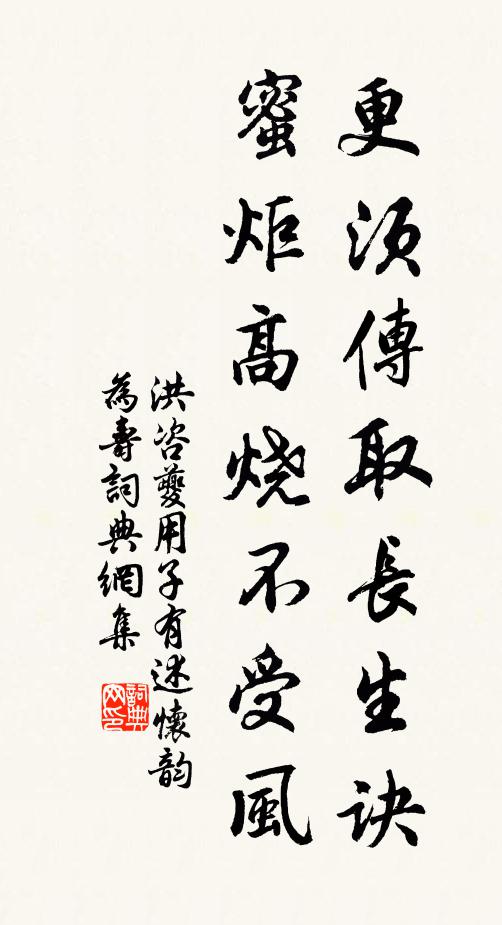 更須傳取長生訣
蜜炬高燒不受風
洪咨夔用子有述懷韵
為壽詞典網集
詞典
网印